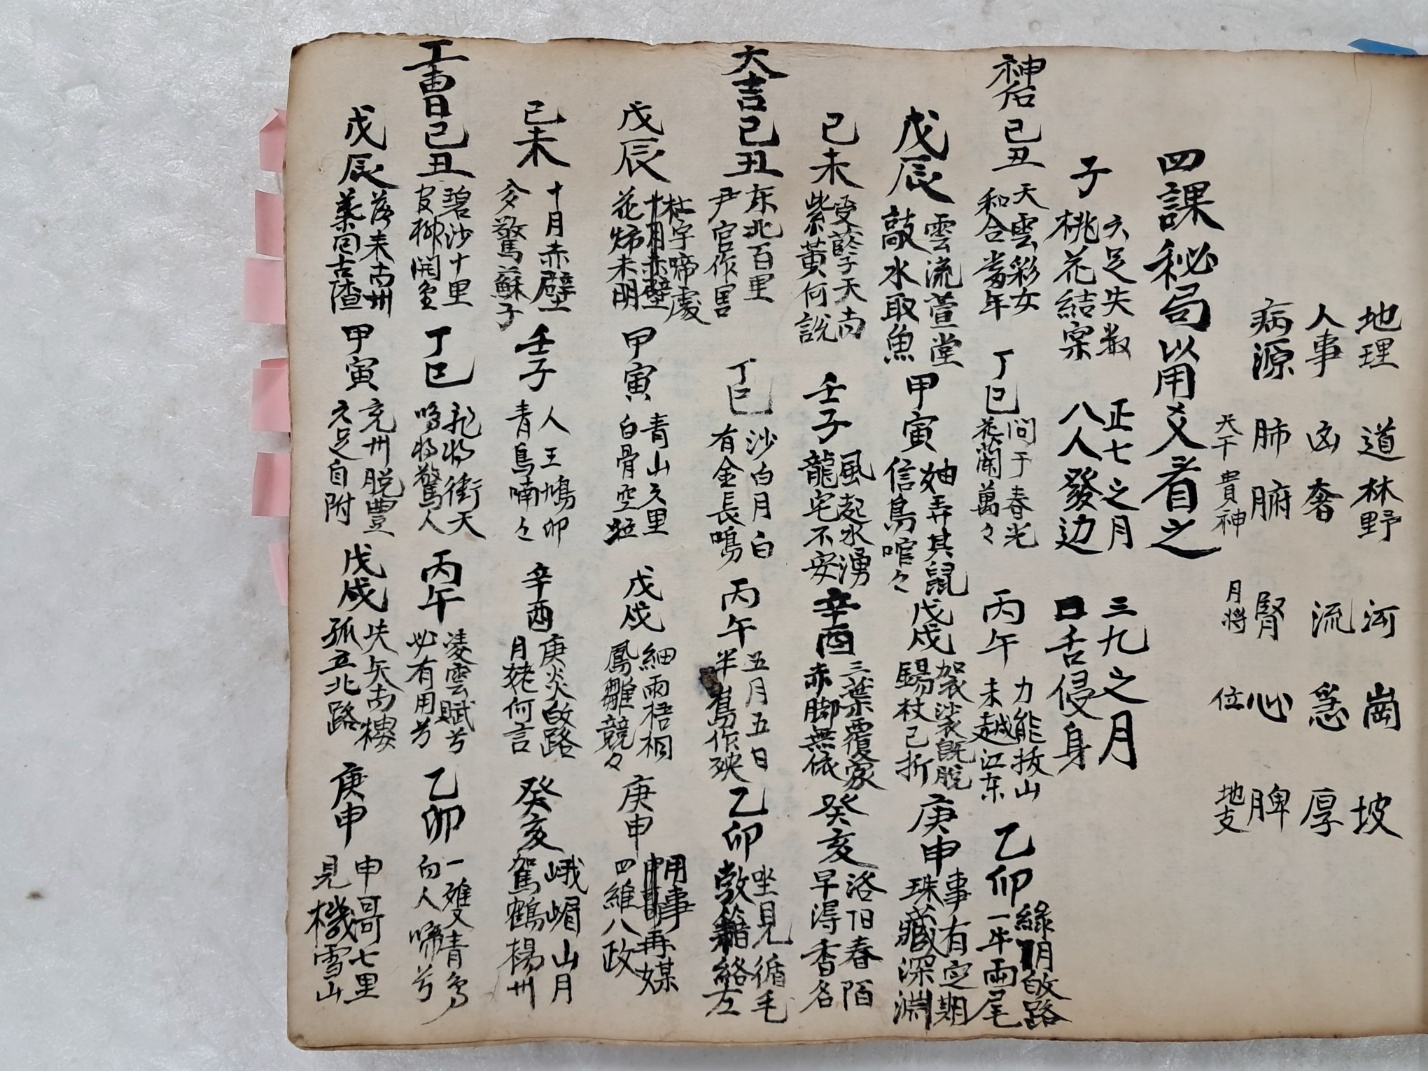 地理 道林野 河 崗 坡
人事 凶奢 流 急 厚
病源 肺腑 腎 心 脾
天干 貴神 月將 位 地支
四課秘局以用爻看之
子 六足失数 正七之月 三九之月
桃花結案 八人發边 口舌侵身
神后己丑 天雲彩女 和合當年 丁巳 问于春光 花開萬々 丙午 力能拔山 未越江东 乙卯 綠阴故路 一牛両尾
戊辰 雲流萱堂 敲水取魚 甲寅 妯弄其鼠 信鳥喧々 戊戌 袈裟既脫 錫杖已折 庚申 事有定期 珠藏深淵
己未 天南 紫黄何説 壬子 風起水湧 龍宅不安 辛酉 三葉覆家 赤脚無依 癸亥 洛阳春陌 早得香名
大吉己丑 东北百里 尹官作害 丁巳 沙白月白 有金長鳴 丙午 五月五日 半島作殃 乙卯 坐見循毛 絡左
戊辰 杜宇啼處 花烛未明 甲寅 青山久里 白骨空 戊戌 細雨梧桐 鳳雛競々 庚申 用事再媒 四維八政
己未 十月赤壁 多驚蘇子 壬子 人王鳩卯 青鳥喃々 辛酉 庚炎故路 月姥何言 癸亥 峨嵋山月 駕鶴楊州
工曹己丑 碧沙十里 官柳開金 丁巳 龍將衝天 鳴將驚人 丙午 凌雲賦兮 必有用兮 乙卯 一雙青鳥 向人啼兮
戊辰 落来南州 葉同古渣 甲寅 兖州脱豊 六足自附 戊戌 失矢南楼 孤立北路 庚申 申哥七里 見機雪山